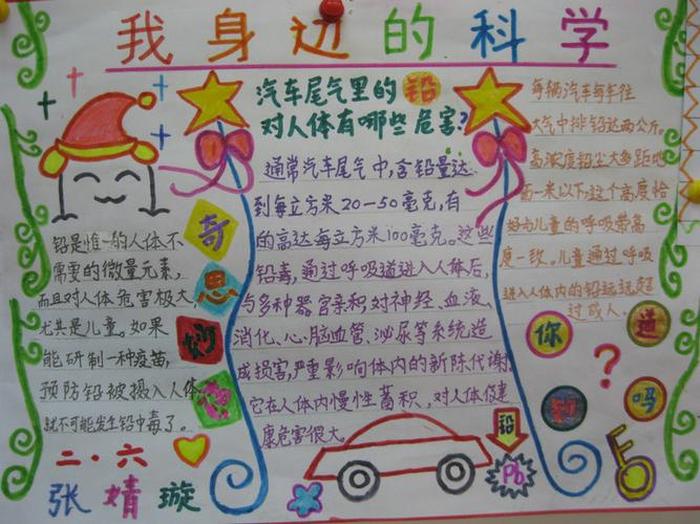 我身边的科学
汽车尾气里的铅
对人体有哪些危害?
铅是惟一的人体不
需要的微量元素,
而且对人体危害极大,
尤其是儿童。如果
能研制一种疫苗,
预防铅被摄入人体
就不可能发生铅中毒了。
奇
思
妙
二·六
张婧璇
通常汽车尾气中,含铅量达
到每立方米20—50毫克,有
的高达每立方米100毫克。这些
铅毒,通过呼吸道进入人体后,
与多种器官亲和对神经、血液、
消化、心、脑血管、泌尿等系统造
成损害,严重影响体内的新陈代谢,
它在人体内慢性蓄积,对人体健
康危害很大。
铅
Pb
每辆汽车每年往
大气中排铅达两公斤。
高浓度铅尘大多距地
面一米以下,这个高度恰
好与儿童的呼吸带高
度一致。儿童通过呼吸
进入人体内的铅远远超
过成人。
你
知
道
吗
?